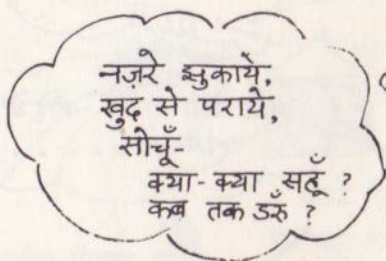 नज़रे झुकाये,
खुद से पराये,
सोचूँ-
क्या-क्या सहूँ ?
कब तक डरूँ ?